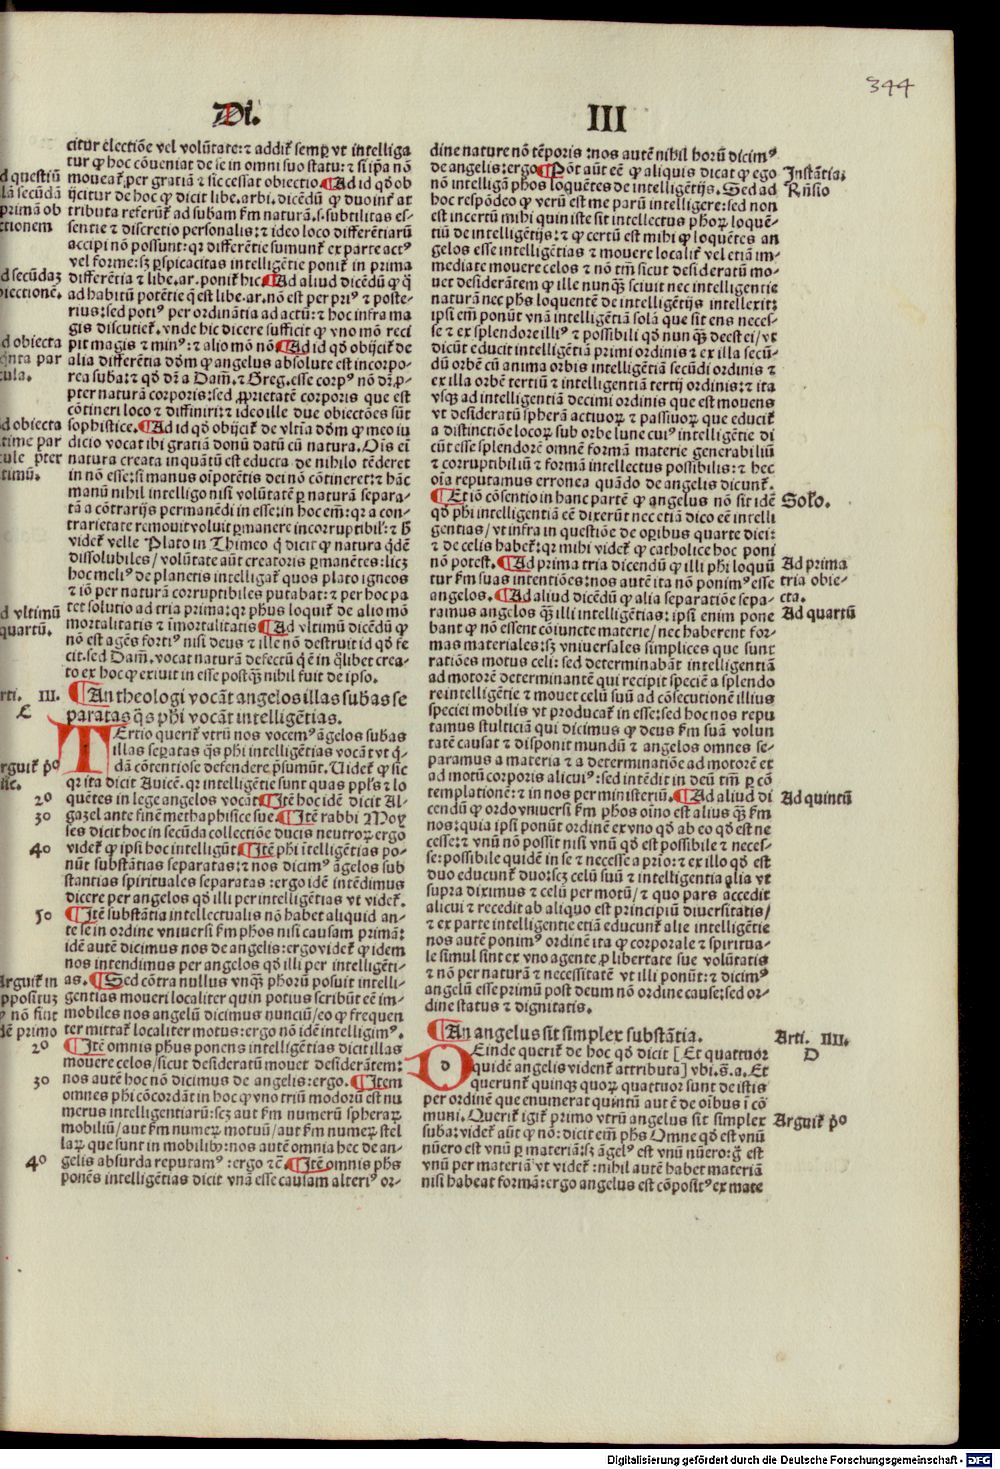 344
Di.
III
citur electiōe vel volūtate: ⁊ addit semꝑ vt intelliga
tur ꝙ hoc cōueniat de se in omni suo statu: ⁊ si ip̄a nō
moueat ꝑ per gratiā ⁊ sic cessat obiectio. ¶Ad id qd̄ ob
ijcitur de hoc ꝙ dicit libe.arbi. dicēdū ꝙ duo int̓ at
tributa referūt̓ ad subam s̄m naturā.s.subtilitas es-
sentie ⁊ discretio personalis: ⁊ ideo loco differētiarū
accipi nō possunt: qr differētie sumunt̓ ex parte actꝰ
vel forme: sꝫ ꝑspicacitas intelligētie ponit̓ in prima
differētia ⁊ libe.ar. ponit̓ hic. ¶Ad aliud dicēdū ꝙ
ad habitū potētie q̄ est libe.ar. nō est per priꝰ ⁊ poste-
rius: sed potiꝰ per ordinātia ad actū: ⁊ hoc infra ma
gis discutiet̓. vnde hic dicere sufficit ꝙ vno mō reci
pit magis ⁊ minꝰ: ⁊ alio mō nō. ¶Ad id qd̄ obijcit̓ de
alia differētia dōm ꝙ angelus absolute est incorpo-
rea suba: ⁊ qd̄ dr̄ a Dam. ⁊ Greg. esse corpꝰ nō dr̄ ꝓ-
pter naturā corporis: sed ꝓprietatē corporis que est
cōtineri loco ⁊ diffiniri: ⁊ ideo ille due obiectōes sūt
sophistice. ¶Ad id qd̄ obijcit̓ de vltīa dōm ꝙ meo iu
dicio vocat ibi gratiā donū datū cū natura. Oīs ei̅
natura creata inquātū est educta de nihilo tēderet
in nō esse: si manus oīpotētis dei nō cōtineret: ⁊ hāc
manū nihil intelligo nisi volūtatē ꝑ naturā separa-
tā a cōtrarijs permanēdi in esse: in hoc em̄: qr a con-
trarietate remouit voluit ꝑmanere incorruptibil': ⁊ h̄
videt̓ velle Plato in Thimeo q̄ dicit ꝙ natura q̄dē
dissolubiles/ volūtate aūt creatoris ꝑmanētes: licꝫ
hoc meliꝰ de planetis intelligat̓ quos plato igneos
⁊ iō per naturā corruptibiles putabat: ⁊ per hoc pa
tet solutio ad tria prima: qr ph̄us loquit̓ de alio mō
mortalitatis ⁊ īmortalitatis. ¶Ad vltimū dicēdū ꝙ
nō est agēs fortiꝰ nisi deus ⁊ ille nō destruit id qd̄ fe
cit. sed Dam̄. vocat naturā defectū q̄ ē in q̄libet crea-
to ex hoc ꝙ exiuit in esse postꝙ̄ nihil fuit de ipso.
¶An theologi vocāt angelos illas subas se
paratas q̄s ph̄i vocāt intelligētias.
TErtio querit̓ vtrū nos vocemꝰ āgelos subas
illas seꝑatas q̄s ph̄i intelligētias vocāt vt q̄-
dā cōtentiose defendere p̄sumūt. Uidet̓ ꝙ sic
qr ita dicit Auicē. qr intelligētie sunt quas pp̄ls ⁊ lo
quētes in lege angelos vocāt. ¶Itē hoc idē dicit Al-
gazel ante finē methaphisice sue. ¶Itē rabbi Moy
ses dicit hoc in secūda collectiōe ducis neutroꝝ: ergo
videt̓ ꝙ ipsi hoc intelligūt. ¶Itē ph̄i ītelligētias po-
nūt substātias separatas: ⁊ nos dicimꝰ āgelos sub
stantias spirituales separatas: ergo idē intēdimus
dicere per angelos qd̄ illi per intelligētias vt videt̓.
¶Itē substātia intellectualis nō habet aliquid an-
te se in ordine vniuersi s̄m ph̄os nisi causam primā:
idē autē dicimus nos de angelis: ergo videt̓ ꝙ idem
nos intendimus per angelos qd̄ illi per intelligēti-
as. ¶Sed cōtra nullus vnꝙ̄ ph̄orū posuit intelli-
gentias moueri localiter quin potius scribūt eē im-
mobiles nos angelū dicimus nunciū/ eo ꝙ frequen
ter mittat̓ localiter motus: ergo nō idē intelligimꝰ.
¶Itē omnis ph̄us ponens intelligētias dicit illas
mouere celos/ sicut desideratū mouet desiderātem:
nos autē hoc nō dicimus de angelis: ergo. ¶Item
omnes ph̄i cōcordāt in hoc ꝙ vno triū modorū est nu
merus intelligentiarū: scꝫ aut s̄m numerū spheraꝝ
mobiliū/ aut s̄m numeꝝ motuū/ aut s̄m numeꝝ stel
laꝝ que sunt in mobilibꝰ: nos autē omnia hec de an-
gelis absurda reputamꝰ: ergo ⁊c̄. ¶Itē omnis ph̄s
ponēs intelligētias dicit vnā esse causam alteriꝰ or-
d questiū
lā secūdā
primā ob
ctionem
d secūdaꝫ
biectionē.
d obiecta
q̄nta par
cula.
d obiecta
time par
cule ꝓter
timū.
d vltimū
quartū.
rti. III.
E
rguit̓ pº
sic.
2º
3º
4º
5º
Arguit̓ in
oppositūꝫ
ꝙ nō sint
idē primo
2º
3º
4º
dine nature nō tēporis: nos autē nihil horū dicimꝰ
de angelis: ergo. ¶Pōt aūt eē ꝙ aliquis dicat ꝙ ego
nō intelligā ph̄os loquētes de intelligētijs. Sed ad
hoc respōdeo ꝙ verū est me parū intelligere: sed non
est incertū mihi quin iste sit intellectus ph̄oꝝ loquē-
tiū de intelligētijs: ⁊ ꝙ certū est mihi ꝙ loquētes an
gelos esse intelligētias ⁊ mouere localit̓ vel etiā im-
mediate mouere celos ⁊ nō tm̄ sicut desideratū mo-
uet desiderātem ꝙ ille nunꝙ̄ sciuit nec intelligentie
naturā nec ph̄s loquentē de intelligētijs intellexit:
ipsi em̄ ponūt vnā intelligētiā solā que sit ens neces-
se ⁊ ex splendore illiꝰ ⁊ possibili qd̄ nunꝙ̄ deest ei/ vt
dicūt educit intelligētiā primi ordinis ⁊ ex illa secū-
dū orbē cū anima orbis intelligētiā secūdi ordinis ⁊
ex illa orbē tertiū ⁊ intelligentiā tertij ordinis: ⁊ ita
vsqꝫ ad intelligentiā decimi ordinis que est mouens
vt desideratū spherā actiuoꝝ ⁊ passiuoꝝ que educit̓
a distinctiōe locoꝝ sub orbe lune cuiꝰ intelligētie di
cūt esse splendorē omnē formā materie generabiliū
⁊ corruptibiliū ⁊ formā intellectus possibilis: ⁊ hec
oīa reputamus erronea quādo de angelis dicunt̓.
¶Et iō cōsentio in hanc partē ꝙ angelus nō sit idē
qd̄ ph̄i intelligentiā eē dixerūt nec etiā dico eē intelli
gentias/ vt infra in questiōe de oꝑibus quarte diei:
⁊ de celis habet̓: qr mihi videt̓ ꝙ catholice hoc poni
nō potest. ¶Ad prima tria dicendū ꝙ illi ph̄i loquū
tur s̄m suas intentiōes: nos autē ita nō ponimꝰ esse
angelos. ¶Ad aliud dicendū ꝙ alia separatiōe sepa-
ramus angelos ꝙ̄ illi intelligētias: ipsi enim pone
bant ꝙ nō essent cōiuncte materie/ nec haberent for-
mas materiales: sꝫ vniuersales simplices que sunt
ratiōes motus celi: sed determinabāt intelligentiā
ad motorē determinantē qui recipit speciē a splendo
re intelligētie ⁊ mouet celū suū ad cōsecutionē illius
speciei mobilis vt producat̓ in esse: sed hoc nos repu
tamus stulticiā qui dicimus ꝙ deus s̄m suā volun
tatē causat ⁊ disponit mundū ⁊ angelos omnes se-
paramus a materia ⁊ a determinatiōe ad motorē et
ad motū corporis alicuiꝰ: sed intēdit in deū tm̄ ꝑ cō
templationē: ⁊ in nos per ministeriū. ¶Ad aliud di
cendū ꝙ ordo vniuersi s̄m ph̄os oīno est alius ꝙ̄ s̄m
nos: quia ipsi ponūt ordinē ex vno qd̄ ab eo qd̄ est ne
cesse: ⁊ vnū nō possit nisi vnū qd̄ est possibile ⁊ neces-
se: possibile quidē in se ⁊ necesse a prīo: ⁊ ex illo qd̄ est
duo educunt̓ duo: scꝫ celū suū ⁊ intelligentia alia vt
supra diximus ⁊ celū per motū/ ⁊ quo pars accedit
alicui ⁊ recedit ab aliquo est principiū diuersitatis/
⁊ ex parte intelligentie etiā educunt̓ alie intelligētie
nos autē ponimꝰ ordinē ita ꝙ corporale ⁊ spiritua-
le simul sint ex vno agente ꝑ libertatē sue volūtatis
⁊ nō per naturā ⁊ necessitatē vt illi ponūt: ⁊ dicimꝰ
angelū esse primū post deum nō ordine cause: sed or-
dine status ⁊ dignitatis.
¶An angelus sit simplex substātia.
DEinde querit̓ de hoc qd̄ dicit [Et quattuor
quidē angelis vident̓ attributa] vbi.s̄.a. Et
querunt̓ quinqꝫ quoꝝ quattuor sunt de istis
per ordinē que enumerat quintū autē de oībus ī cō
muni. Querit̓ igit̓ primo vtrū angelus sit simplex
suba: videt̓ aūt ꝙ nō: dicit em̄ ph̄s Omne qd̄ est vnū
nūero est vnū ꝑ materiā: sꝫ āgelꝰ est vnū nūero: g̊ est
vnū per materiā vt videt̓: nihil autē habet materiā
nisi habeat formā: ergo angelus est cōpositꝰ ex mate
Instātia:
Rn̄sio
Solo.
Ad prima
tria obie-
cta.
Ad quartū
Ad quintū
Arti. IIII.
D
Arguit̓ pº
Digitalisierung gefördert durch die Deutsche Forschungsgemeinschaft - DFG